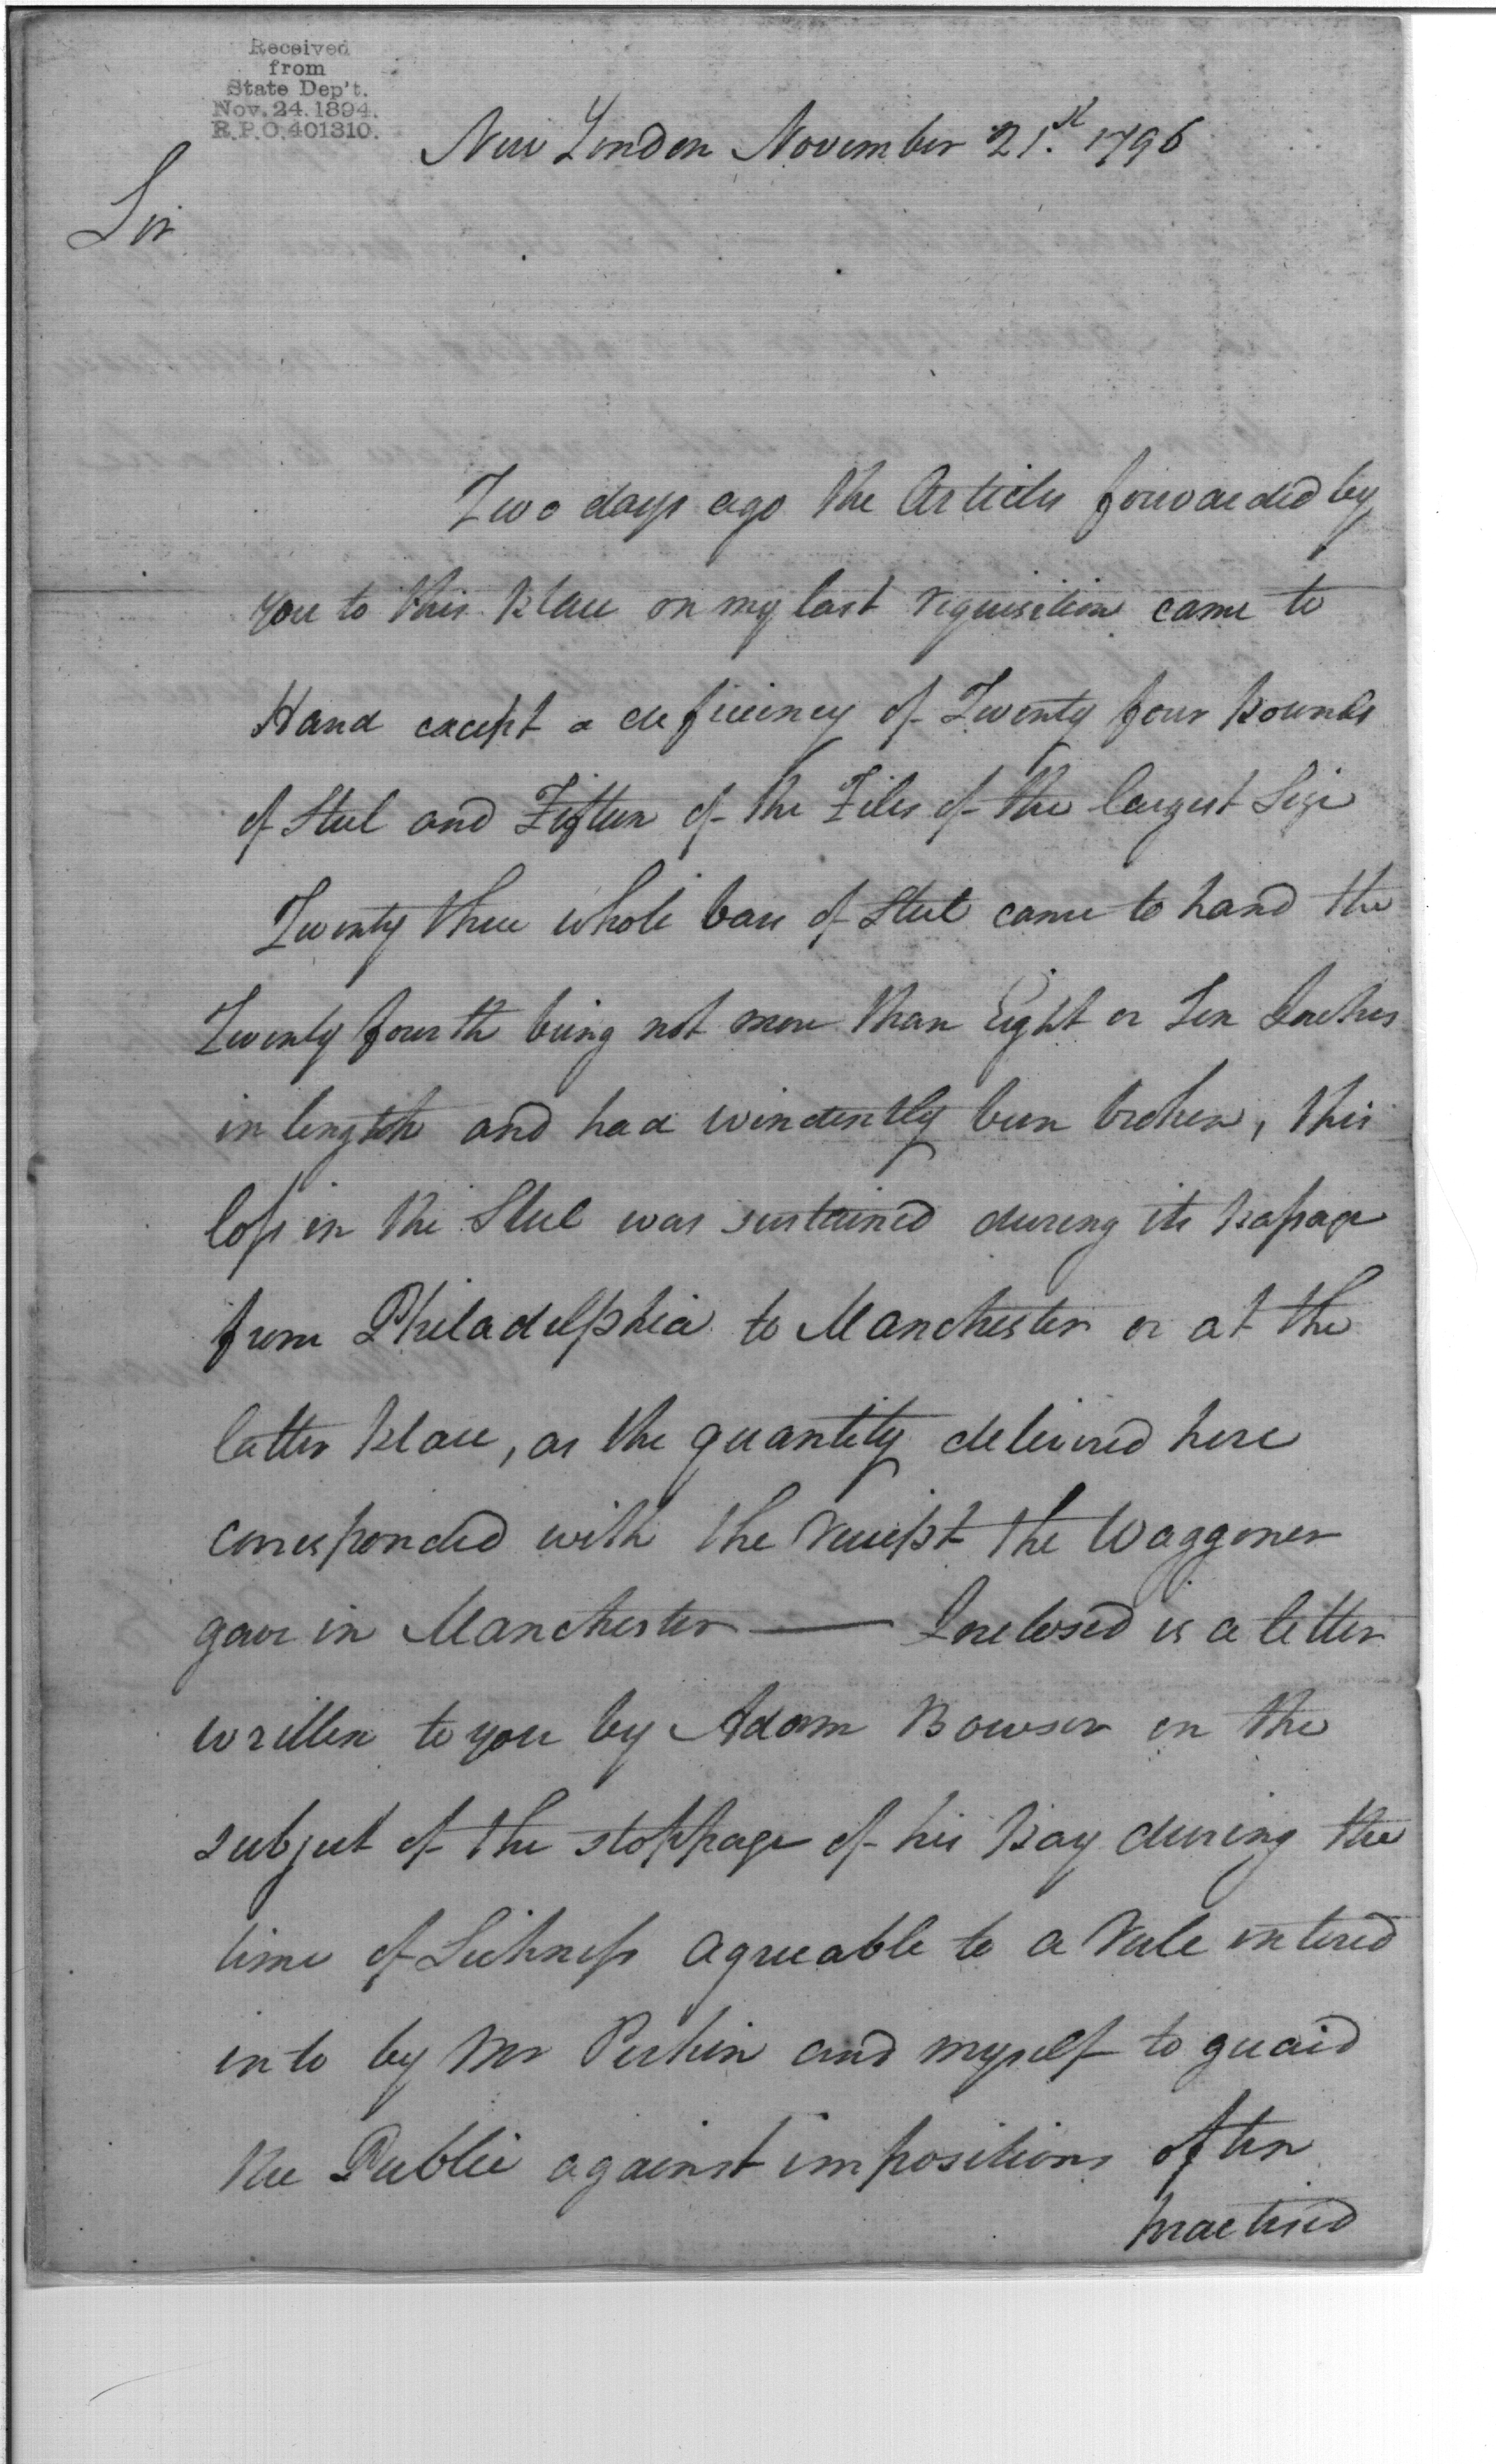 Received
from
State Dep't.
Nov. 24. 1894.
R.P.O. 401310.
New London November 21.st 1796
Sir
Two days ago the Articles forwarded by
you to this place on my last requisition came to
Hand except a deficiency of Twenty four pounds
of Steel and Fifteen of the Files of the largest Size
Twenty three whole bars of Steel came to hand the
Twenty fourth being not more than Eight or Ten Inches
in length and had evidently been broken, this
loss in the Steel was sustained during its passage
from Philadelphia to Manchester or at the
latter place, as the quantity delivered here
corresponded with the receipt the Waggoner
gave in Manchester — Inclosed is a letter
written to you by Adam Bowser on the
subject of the stoppage of his pay during the
time of Sickness agreeable to a rule entered
into by Mr Perkin and myself to guard
the Public against impositions often
practised